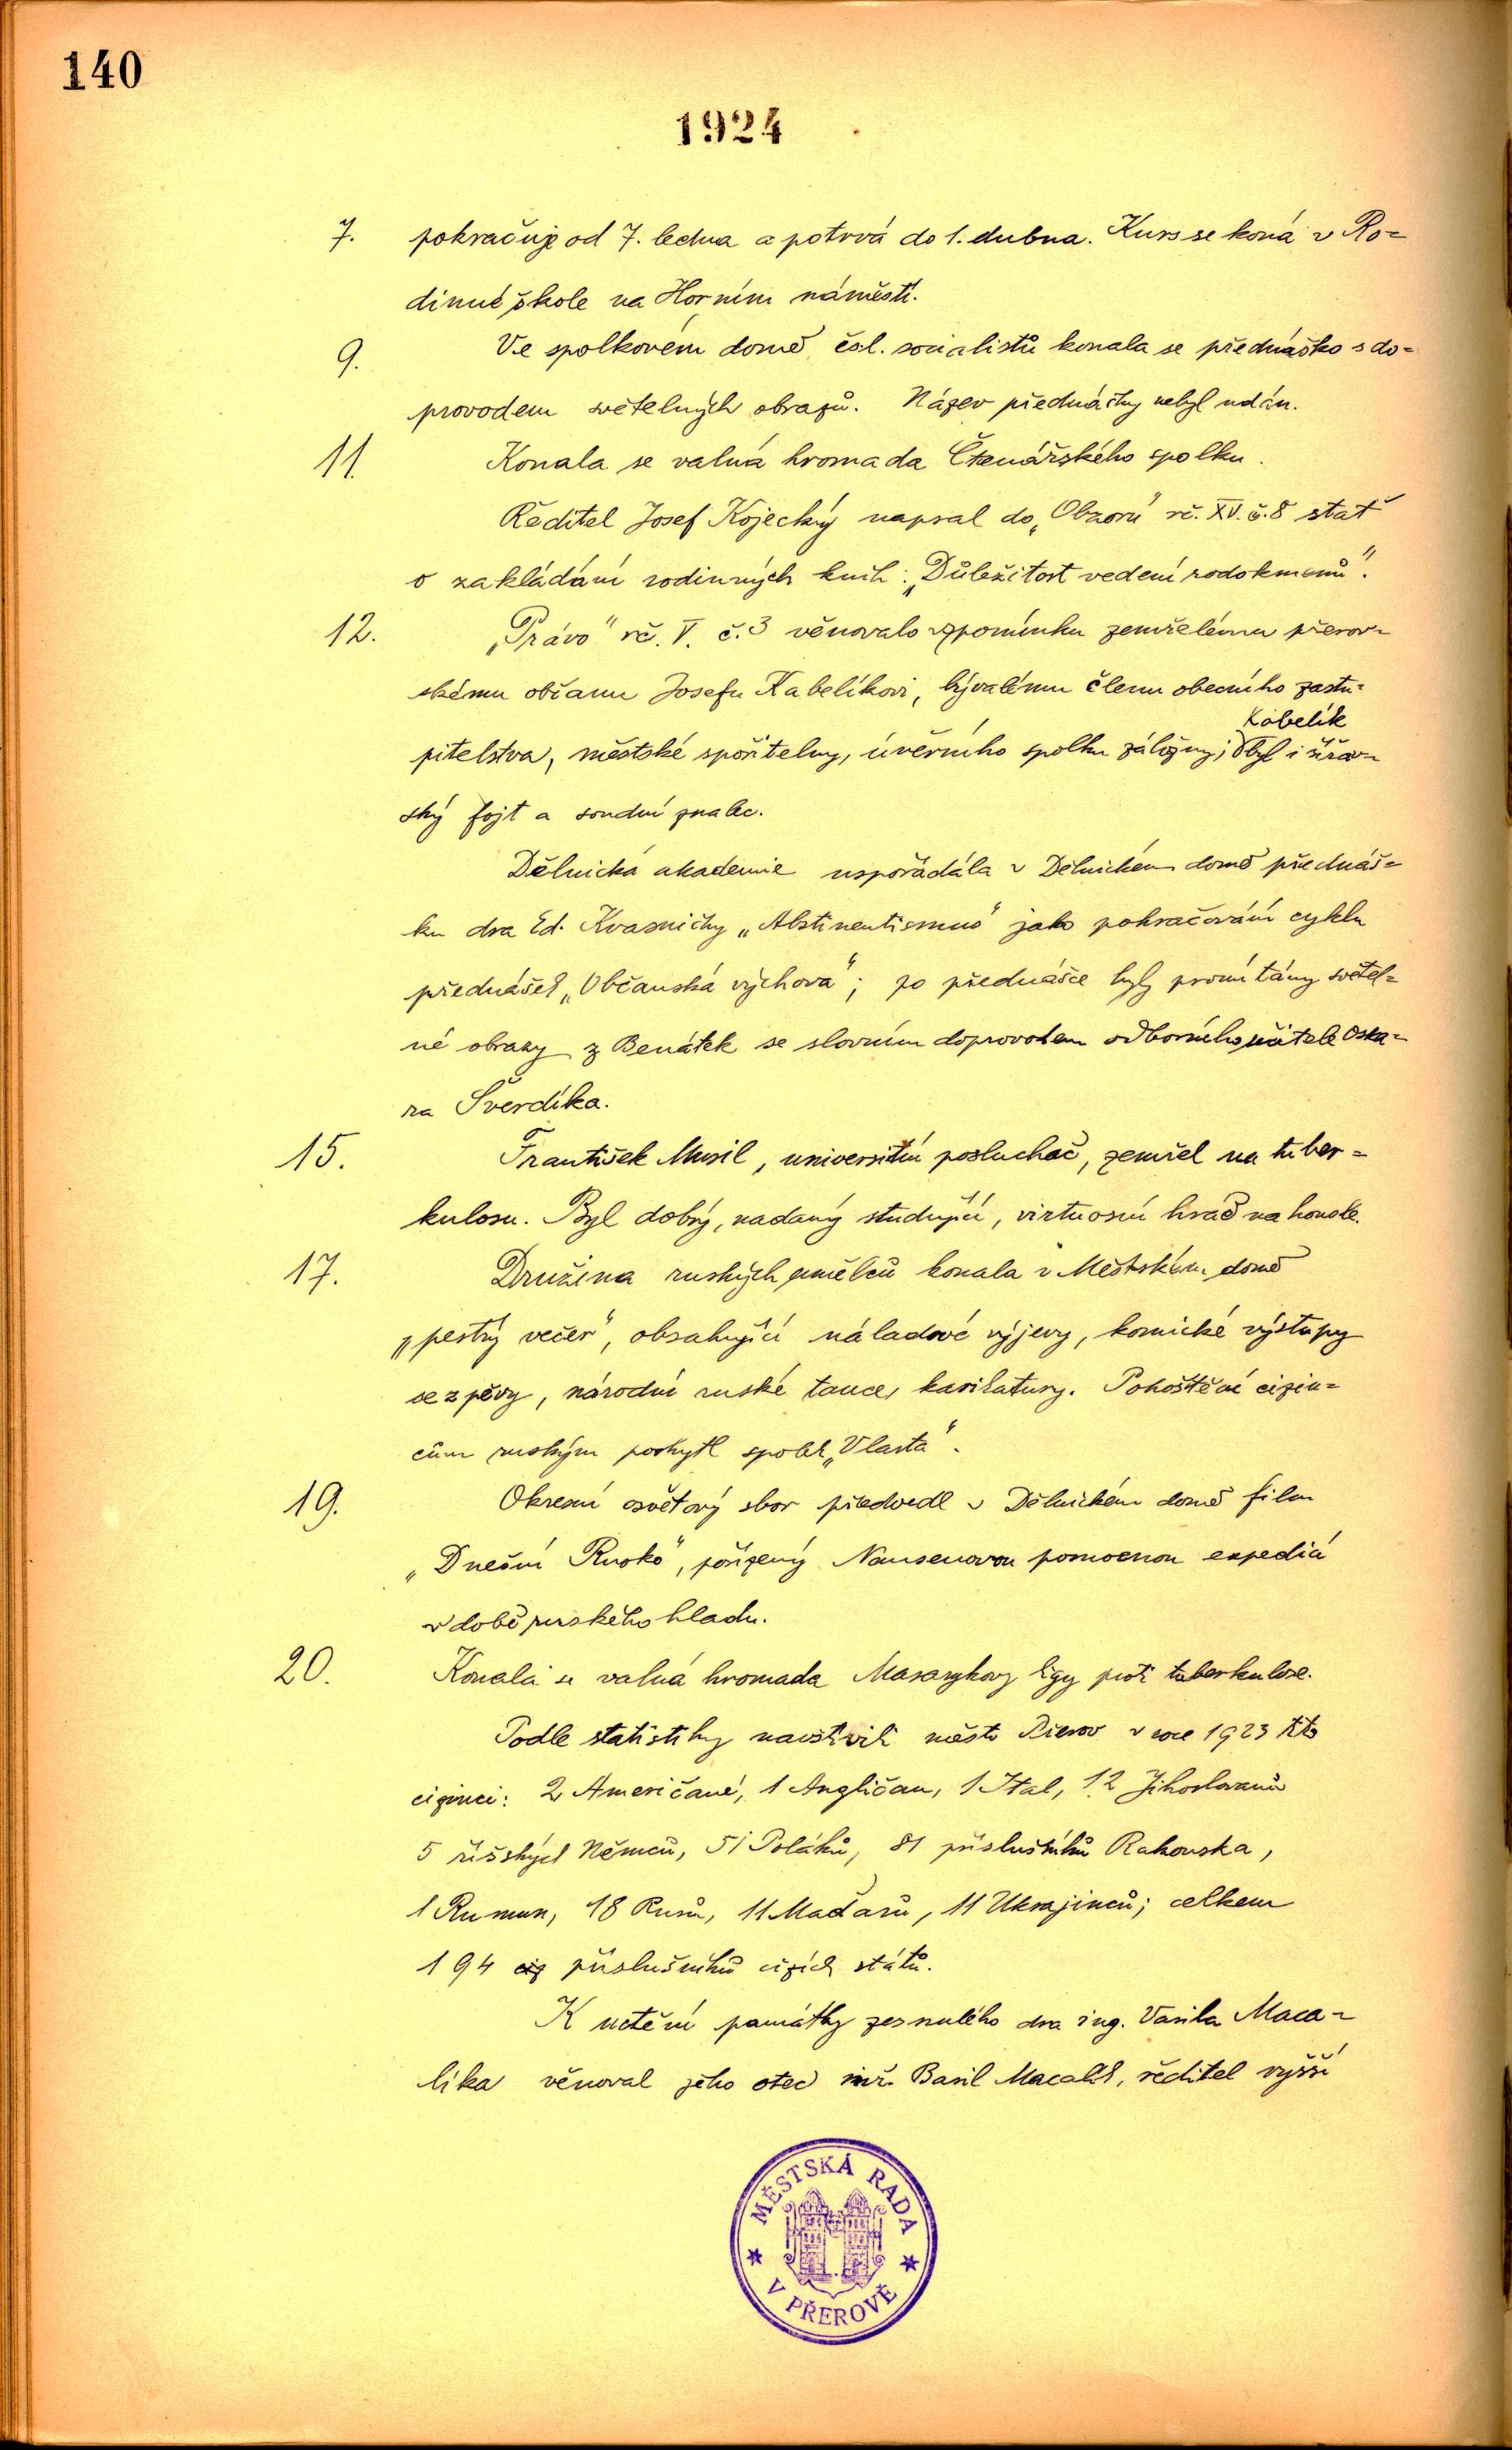 140
1924
7. pokračuje od 7. ledna a potrvá do 1. dubna. Kurs se koná v Ro=
dinné škole na Horním náměstí.
9. Ve spolkovém domě čsl. socialistů konala se přednáška s do=
provodem světelných obrazů. Název přednášky nebyl udán.
11. Konala se valná hromada Čtenářského spolku.
Ředitel Josef Kojecký napsal do „Obzoru" rč. XV. č. 8 stať
o zakládání rodinných knih: „Důležitost vedení rodokmenů".
12. „Právo" rč. V. č. 3 věnovalo vzpomínku zemřelému přerov=
skému občanu Josefu Kabelíkovi, bývalému členu obecního zastu=
pitelstva, městské spořitelny, úvěrního spolku záložny; Kabelík byl i šířav=
ský fojt a soudní znalec.
Dělnická akademie uspořádala v Dělnickém domě přednáš=
ku dra Ed. Kvasničky „Abstinentismus" jako pokračování cyklu
přednášek „Občanská výchova"; po přednášce byly promítány světel=
né obrazy z Benátek se slovním doprovodem odborného učitele Oska=
ra Šverdíka.
15. František Musil, universitní posluchač, zemřel na tuber=
kulosu. Byl dobrý, nadaný studující, virtuosní hráč na housle.
17. Družina ruských umělců konala v Městském domě
„pestrý večer", obsahující náladové výjevy, komické výstupy
se zpěvy, národní ruské tance, karikatury. Pohoštění cizin=
cům ruským poskytl spolek „Vlasta".
19. Okresní osvětový sbor předvedl v Dělnickém domě film
„Dnešní Rusko", pořízený Nansenovou pomocnou expedicí
v době ruského hladu.
20. Konala se valná hromada Masarykovy ligy proti tuberkulose.
Podle statistiky navštívili město Přerov v roce 1923 tito
cizinci: 2 Američané, 1 Angličan, 1 Ital, 12 Jihoslovanů
5 říšských Němců, 51 Poláků, 81 příslušníků Rakouska,
1 Rumun, 18 Rusů, 11 Maďarů, 11 Ukrajinců; celkem
194 ciz příslušníků cizích států.
K uctění památky zesnulého dra ing. Vasila Maca=
líka věnoval jeho otec inž. Basil Macalík, ředitel vyšší
MĚSTSKÁ RADA
V PŘEROVĚ